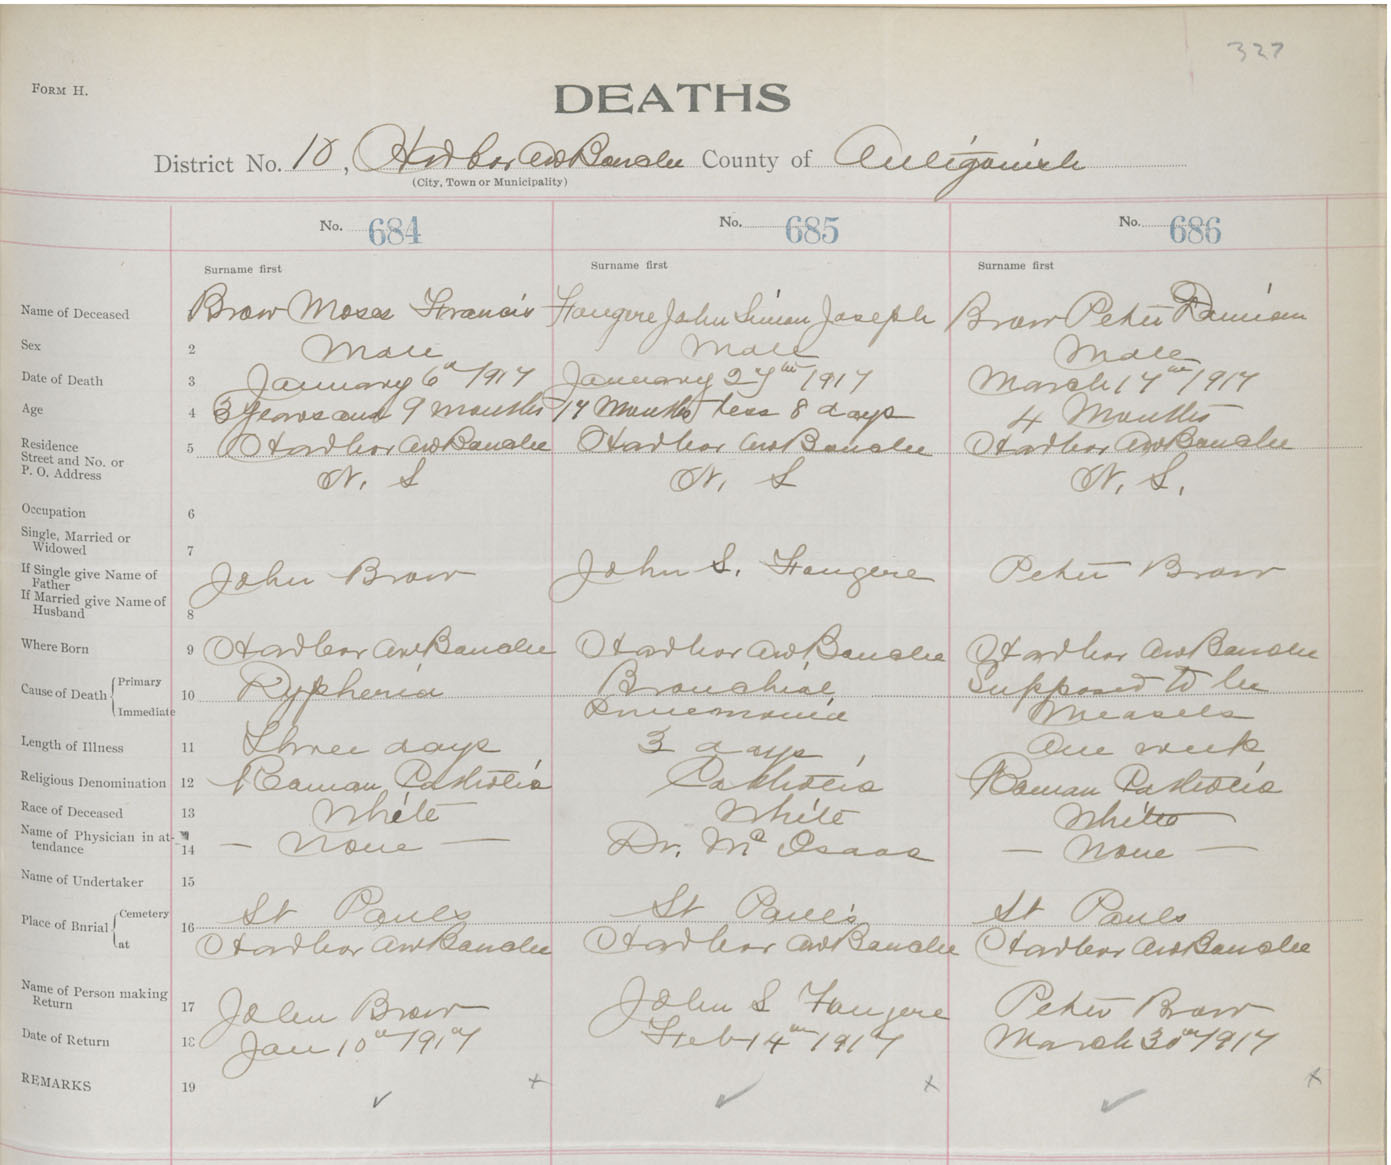 327
FORM H.
DEATHS
District No. 10, Harbor au Bouche County of Antigonish
(City, Town or Municipality)
No. 684 No. 685 No. 686
Surname first Surname first Surname first
Name of Deceased Brow Moses Francis Fougere John Simon Joseph Brow Peter Damian
Sex 2 Male Male Male
Date of Death 3 January 6th 1917 January 27th 1917 March 17th 1917
Age 4 3 years and 9 months 17 Months less 8 days 4 Months
Residence
Street and No. or
P. O. Address 5 Harbor au Bouche Harbor au Bouche Harbor au Bouche
N. S N. S N. S.
Occupation 6
Single, Married or
Widowed 7
If Single give Name of
Father John Brow John S. Fougere Peter Brow
If Married give Name of
Husband 8
Where Born 9 Harbor au Bouche Harbor au Bouche Harbor au Bouche
Cause of Death Primary 10 Dypheria Bronchial Supposed to be
Immediate Pnuemonia Measels
Length of Illness 11 Three days 3 days One week
Religious Denomination 12 Roman Catholic Catholic Roman Catholic
Race of Deceased 13 White White White
Name of Physician in at-
tendance 14 — None — Dr. Mc Isaac — None —
Name of Undertaker 15
Place of Burial Cemetery 16 St Pauls St Paul's St Pauls
at Harbor au Bouche Harbor au Bouche Harbor au Bouche
Name of Person making
Return 17 John Brow John S Fougere Peter Brow
Date of Return 18 Jan 10th 1917 Feb 14th 1917 March 30th 1917
REMARKS 19